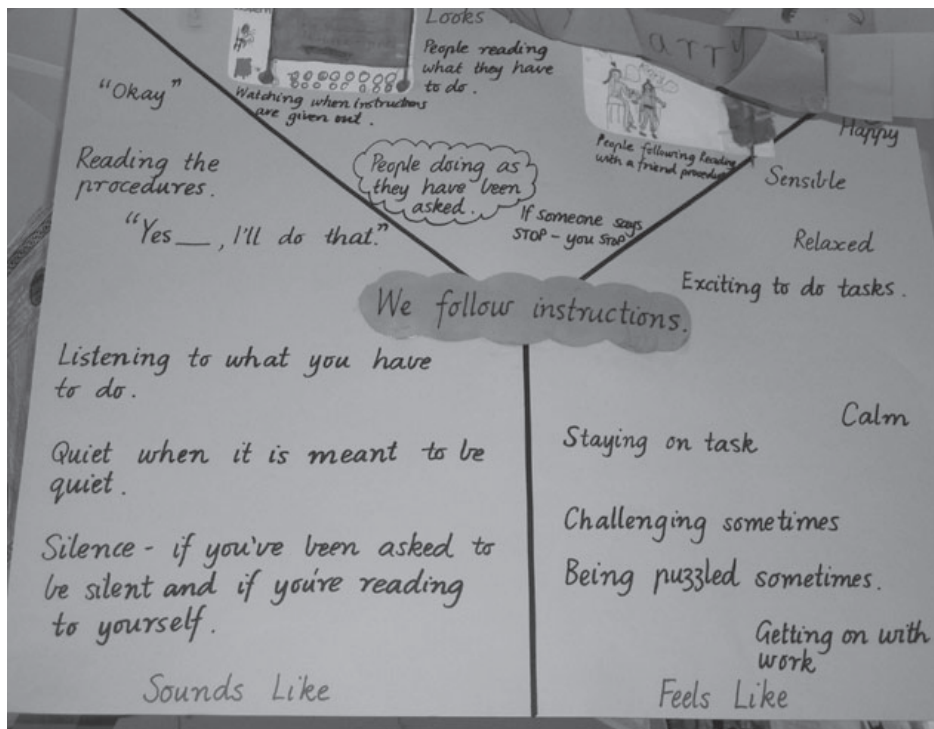 Looks
People reading
what they have
to do.
Watching when instructions
are given out.
People doing as
they have been
asked.
If someone says
STOP - you STOP
People following Reading
with a friend
arry
"Okay"
Reading the
procedures.
"Yes __, I'll do that."
We follow instructions.
Listening to what you have
to do.
Quiet when it is meant to be
quiet.
Silence - if you've been asked to
be silent and if you're reading
to yourself.
Sounds Like
Happy
Sensible
Relaxed
Exciting to do tasks.
Calm
Staying on task
Challenging sometimes
Being puzzled sometimes.
Getting on with
work
Feels Like